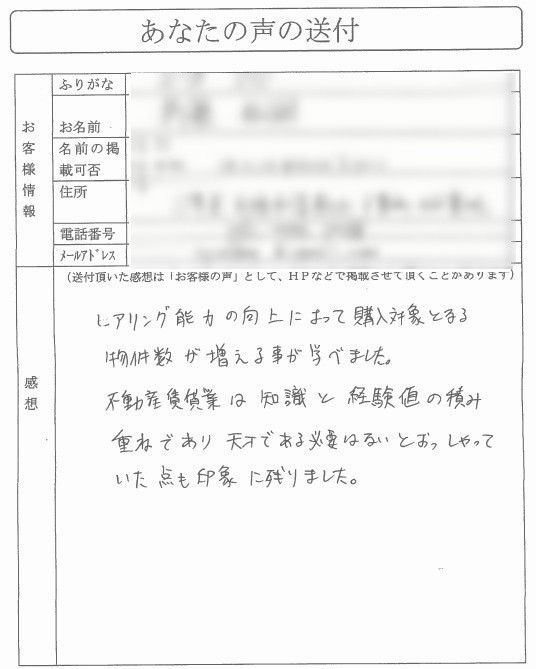 あなたの声の送付
ふりがな
お名前
名前の掲
載可否
住所
電話番号
メールアドレス
お客様情報
(送付頂いた感想は「お客様の声」として、HPなどで掲載させて頂くことがあります)
感想
ヒアリング能力の向上によって購入対象となる
物件数が増える事が学べました。
不動産賃貸業は知識と経験値の積み
重ねであり天才である必要はないとおっしゃって
いた点も印象に残りました。